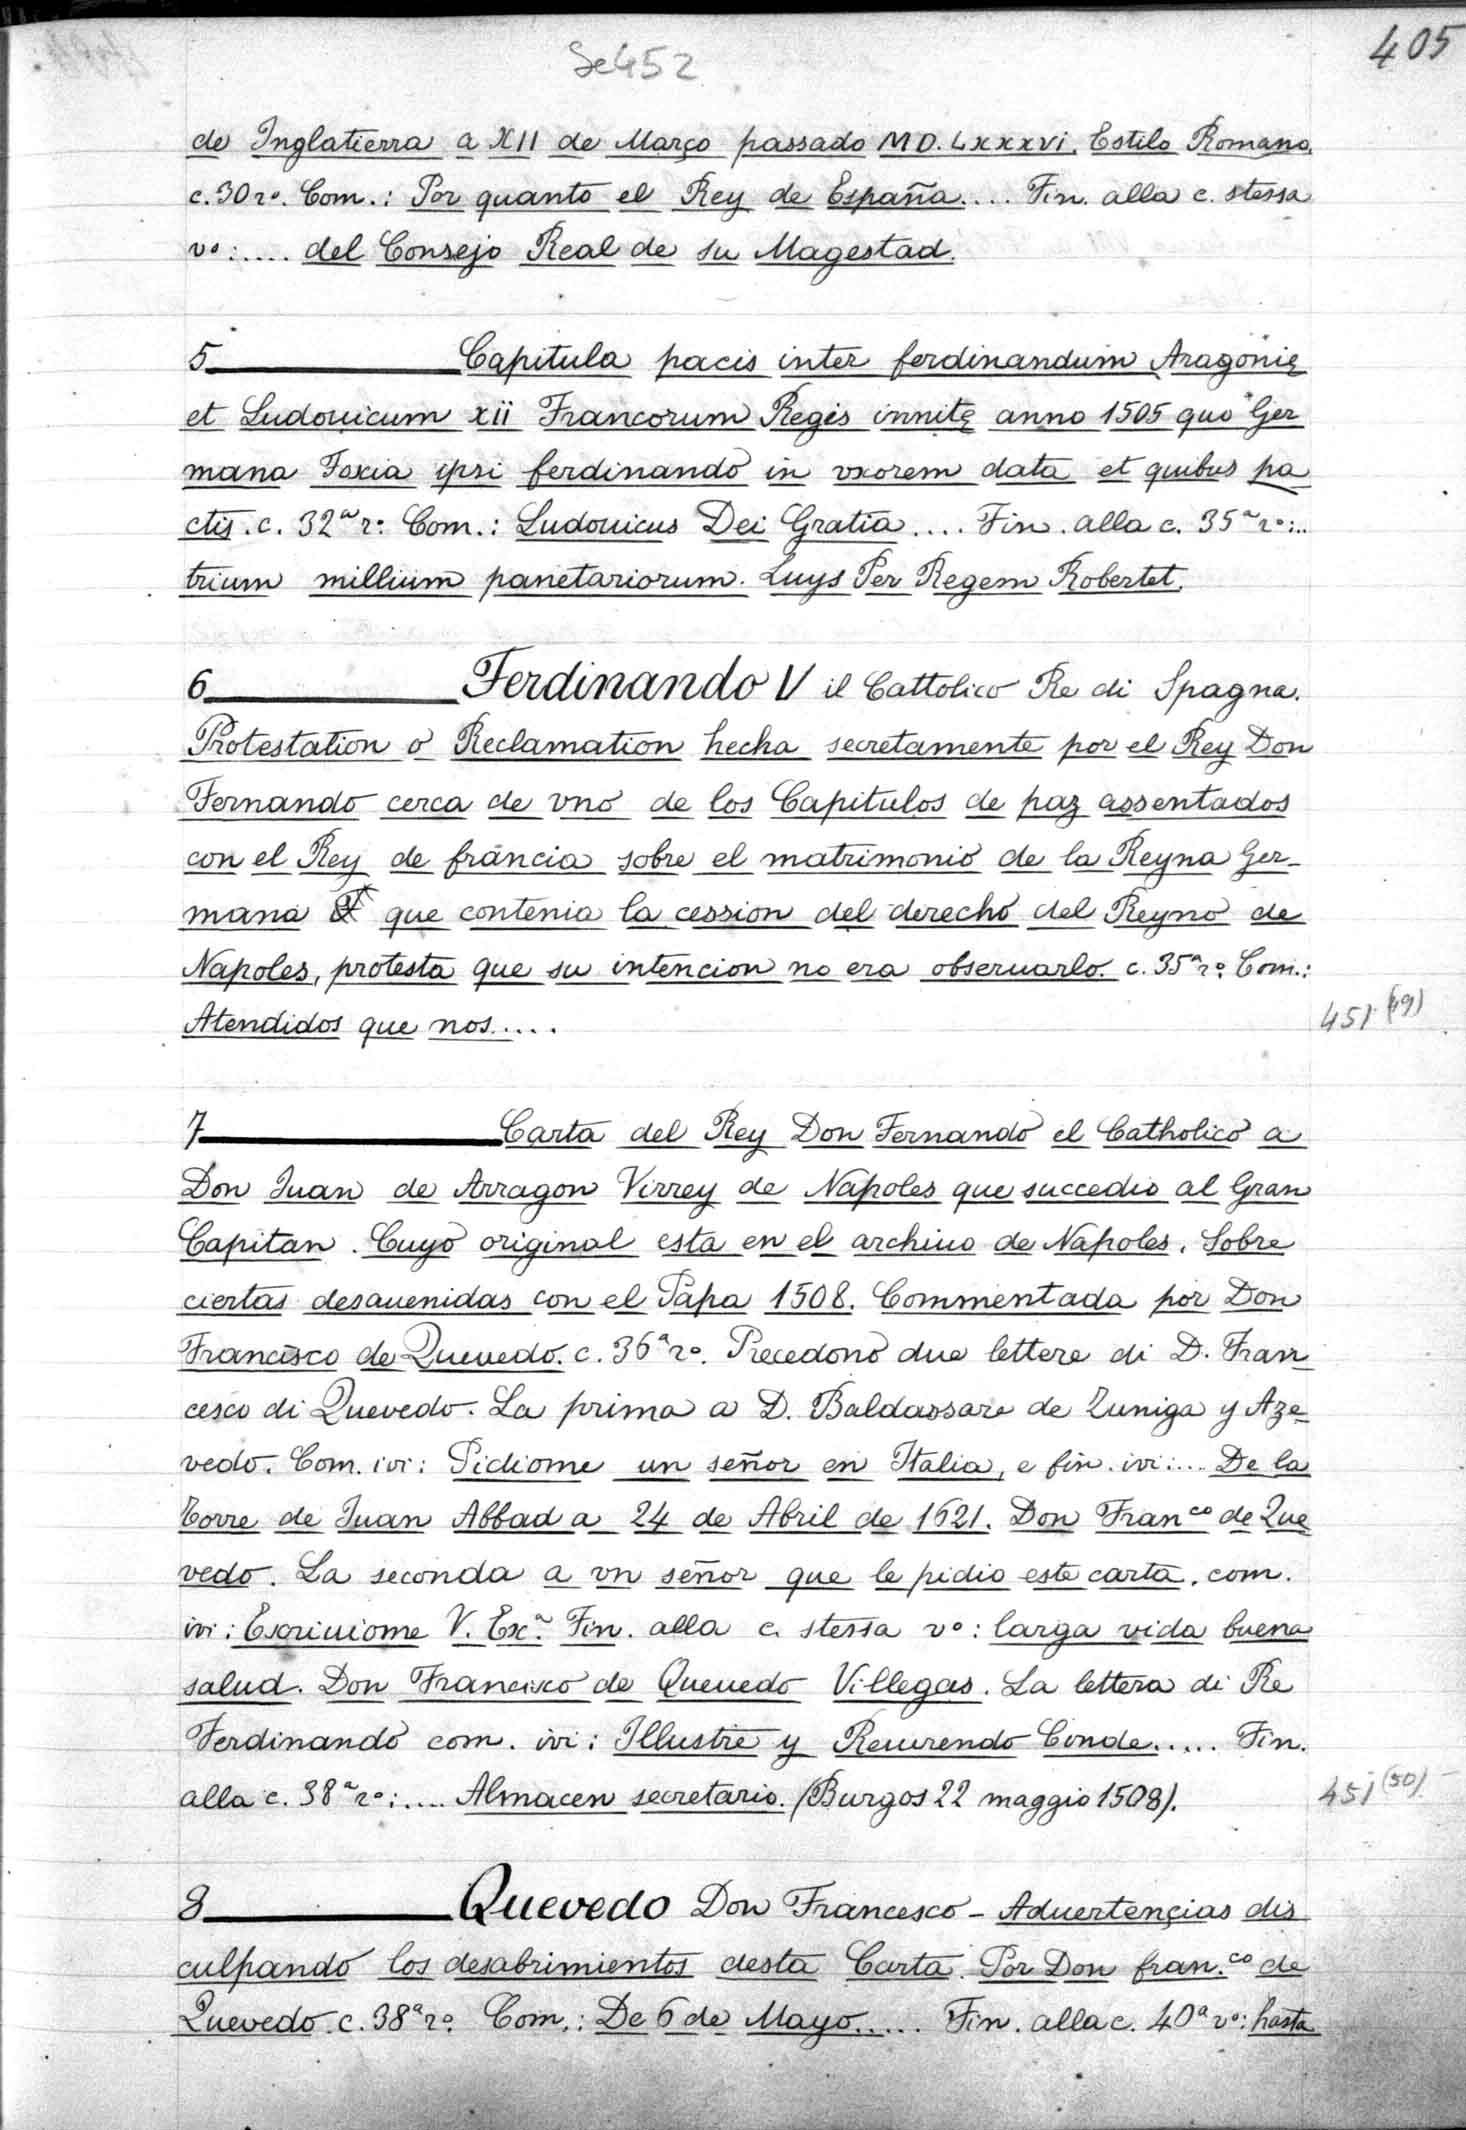 405
Se 452
de Inglatierra a XII de Março passado M D. Lxxxvi. Estilo Romano.
c. 30 rº. Com.: Por quanto el Rey de España.... Fin. alla c. stessa
vº:.... del Consejo Real de su Magestad.
5 Capitula pacis inter ferdinandum Aragonię
et Ludouicum xii Francorum Regis innitę anno 1505 quo Ger
mana Foxia ipsi ferdinando in vxorem data et quibus pa
ctis. c. 32ª rº. Com.: Ludouicus Dei Gratia.... Fin. alla c. 35ª rº:..
trium millium panetariorum. Luys Per Regem Robertet.
6 Ferdinando V il Cattolico Re di Spagna.
Protestation o Reclamation hecha secretamente por el Rey Don
Fernando cerca de vno de los Capitulos de paz assentados
con el Rey de francia sobre el matrimonio de la Reyna Ger-
mana que contenia la cession del derecho del Reyno de
Napoles, protesta que su intencion no era obseruarlo. c. 35ª rº. Com.:
Atendidos que nos....
451 (49)
7 Carta del Rey Don Fernando el Catholico a
Don Juan de Arragon Virrey de Napoles que succedio al Gran
Capitan. Cuyo original esta en el archiuo de Napoles. Sobre
ciertas desauenidas con el Papa 1508. Commentada por Don
Francisco de Queuedo. c. 36ª rº. Precedono due lettere di D. Fran
cesco di Quevedo. La prima a D. Baldassare de Zuniga y Aze-
vedo. Com. ivi: Pidiome un señor en Italia, e fin. ivi:.... De la
Torre de Juan Abbad a 24 de Abril de 1621. Don Franco de Que
vedo. La seconda a vn señor que le pidio este carta. com.
ivi: Escriuiome V. Exª. Fin. alla c. stessa vº: larga vida buena
salud. Don Francisco de Queuedo Villegas. La lettera di Re
Ferdinando com. ivi: Illustre y Reuerendo Conde..... Fin.
alla c. 38ª rº:.... Almacen secretario. (Burgos 22 maggio 1508).
451 (50)
8 Quevedo Don Francesco - Aduertençias dis
culpando los desabrimientos desta Carta. Por Don fran.co de
Quevedo. c. 38ª rº. Com.: De 6 de Mayo..... Fin. alla c. 40ª vº: hasta